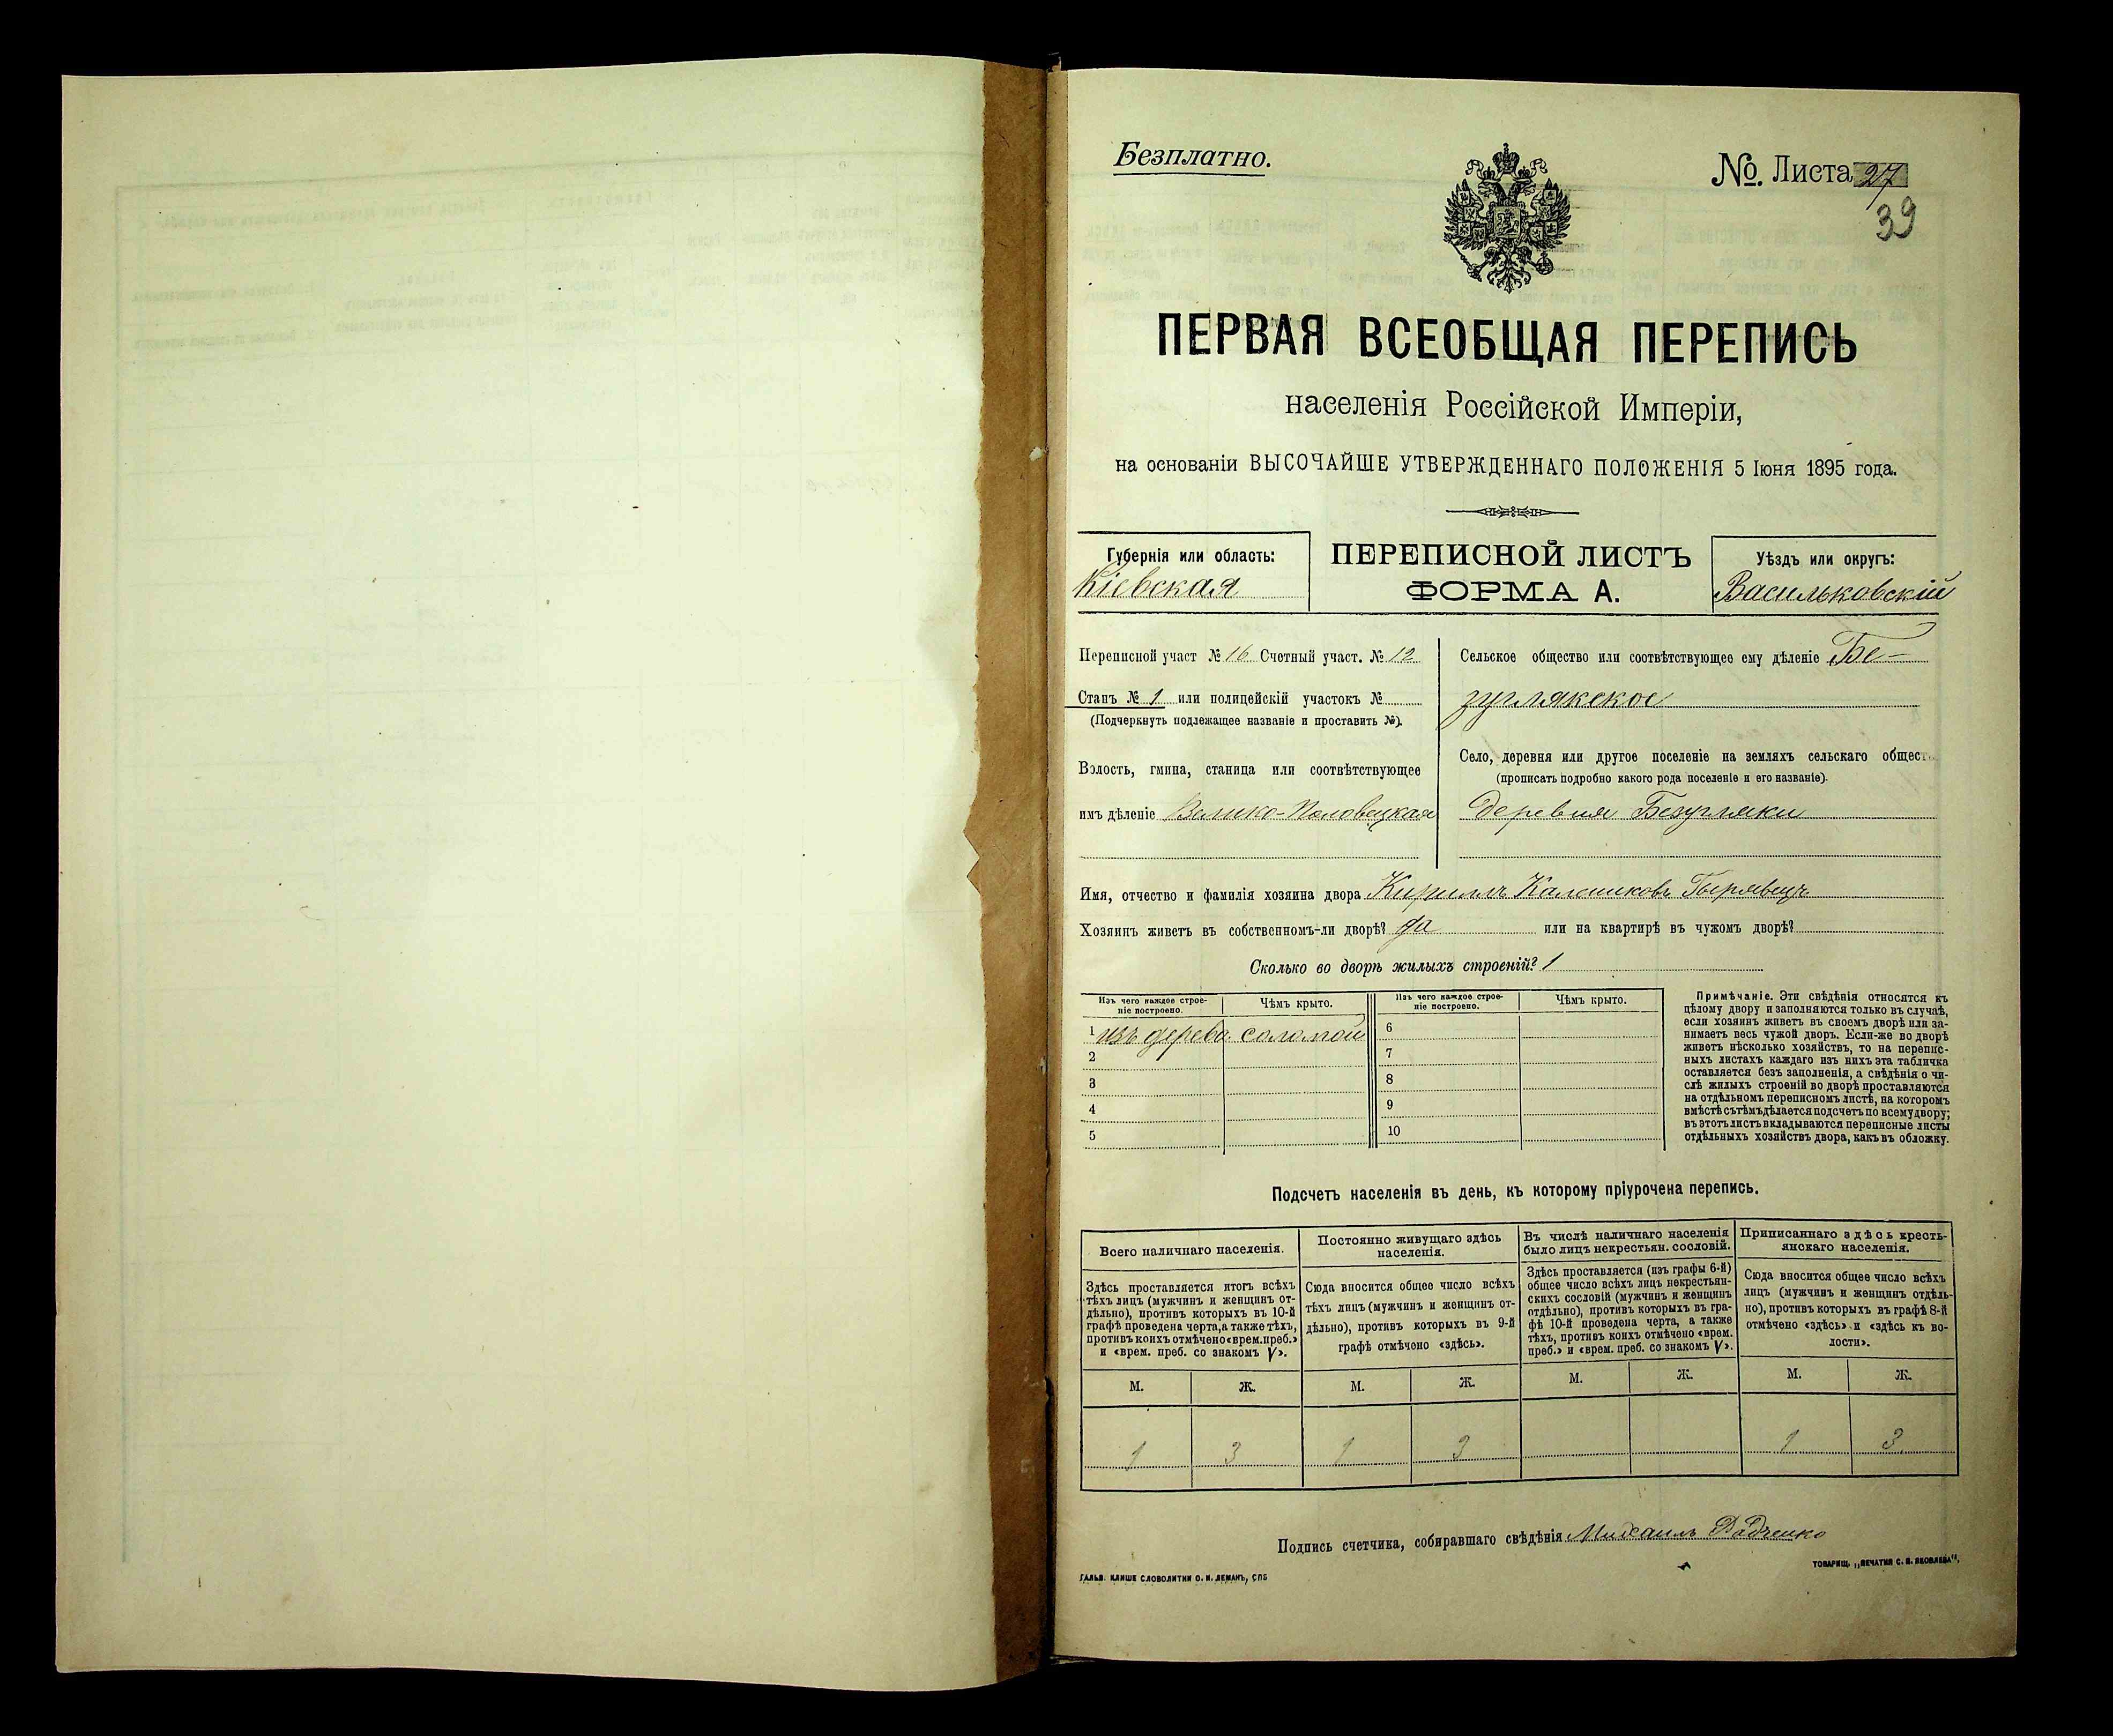 Безплатно.
№. Листа 27
39
ПЕРВАЯ ВСЕОБЩАЯ ПЕРЕПИСЬ
населенія Россійской Имперіи,
на основаніи ВЫСОЧАЙШЕ УТВЕРЖДЕННАГО ПОЛОЖЕНІЯ 5 Іюня 1895 года.
Губернія или область:
Кіевская
ПЕРЕПИСНОЙ ЛИСТЪ
ФОРМА А.
Уѣздъ или округъ:
Васильковскій
Переписной участ № 16 Счетный участ. № 12
Станъ № 1 или полицейскій участокъ №
(Подчеркнуть подлежащее названіе и проставить №).
Волость, гмина, станица или соотвѣтствующее
имъ дѣленіе Велико-Половецкая
Сельское общество или соотвѣтствующее ему дѣленіе Бе-
зуглякское
Село, деревня или другое поселеніе на земляхъ сельскаго общест
(прописать подробно какого рода поселеніе и его названіе).
деревня Безугляки
Имя, отчество и фамилія хозяина двора Кириллъ Калениковъ
Хозяинъ живетъ въ собственномъ-ли дворѣ? да или на квартирѣ въ чужомъ дворѣ?
Сколько во дворѣ жилыхъ строеній? 1
Изъ чего каждое строе-
ніе построено.
Чѣмъ крыто.
1 изъ дерева соломой
2
3
4
5
Изъ чего каждое строе-
ніе построено.
Чѣмъ крыто.
6
7
8
9
10
Примѣчаніе. Эти свѣдѣнія относятся къ
цѣлому двору и заполняются только въ случаѣ,
если хозяинъ живетъ въ своемъ дворѣ или за-
нимаетъ весь чужой дворъ. Если-же во дворѣ
живетъ нѣсколько хозяйствъ, то на перепис-
ныхъ листахъ каждаго изъ нихъ эта табличка
оставляется безъ заполненія, а свѣдѣнія о чи-
слѣ жилыхъ строеній во дворѣ проставляются
на отдѣльномъ переписномъ листѣ, на которомъ
вмѣстѣ съ тѣмъ дѣлается подсчетъ по всему двору;
въ этотъ листъ вкладываются переписные листы
отдѣльныхъ хозяйствъ двора, какъ въ обложку.
Подсчетъ населенія въ день, къ которому пріурочена перепись.
Всего наличнаго населенія.
Здѣсь проставляется итогъ всѣхъ
тѣхъ лицъ (мужчинъ и женщинъ от-
дѣльно), противъ которыхъ въ 10-й
графѣ проведена черта, а также тѣхъ,
противъ коихъ отмѣчено «врем. преб.»
и «врем. преб. со знакомъ V».
М. Ж.
1 3
Постоянно живущаго здѣсь
населенія.
Сюда вносится общее число всѣхъ
тѣхъ лицъ (мужчинъ и женщинъ от-
дѣльно), противъ которыхъ въ 9-й
графѣ отмѣчено «здѣсь».
М. Ж.
1 3
Въ числѣ наличнаго населенія
было лицъ некрестьян. сословій.
Здѣсь проставляется (изъ графы 6-й)
общее число всѣхъ лицъ некрестьян-
скихъ сословій (мужчинъ и женщинъ
отдѣльно), противъ которыхъ въ гра-
фѣ 10-й проведена черта, а также
тѣхъ, противъ коихъ отмѣчено «врем.
преб.» и «врем. преб. со знакомъ V».
М. Ж.
Приписаннаго здѣсь кресть-
янскаго населенія.
Сюда вносится общее число всѣхъ
лицъ (мужчинъ и женщинъ отдѣль-
но), противъ которыхъ въ графѣ 8-й
отмѣчено «здѣсь» и «здѣсь къ во-
лости».
М. Ж.
1 3
Подпись счетчика, собиравшаго свѣдѣнія Михаилъ
ГАЛЬВ. КЛИШЕ СЛОВОЛИТНИ О. И. ЛЕМАНЪ, СПБ
ТОВАРИЩ. „ПЕЧАТНЯ С. П. ЯКОВЛЕВА“.